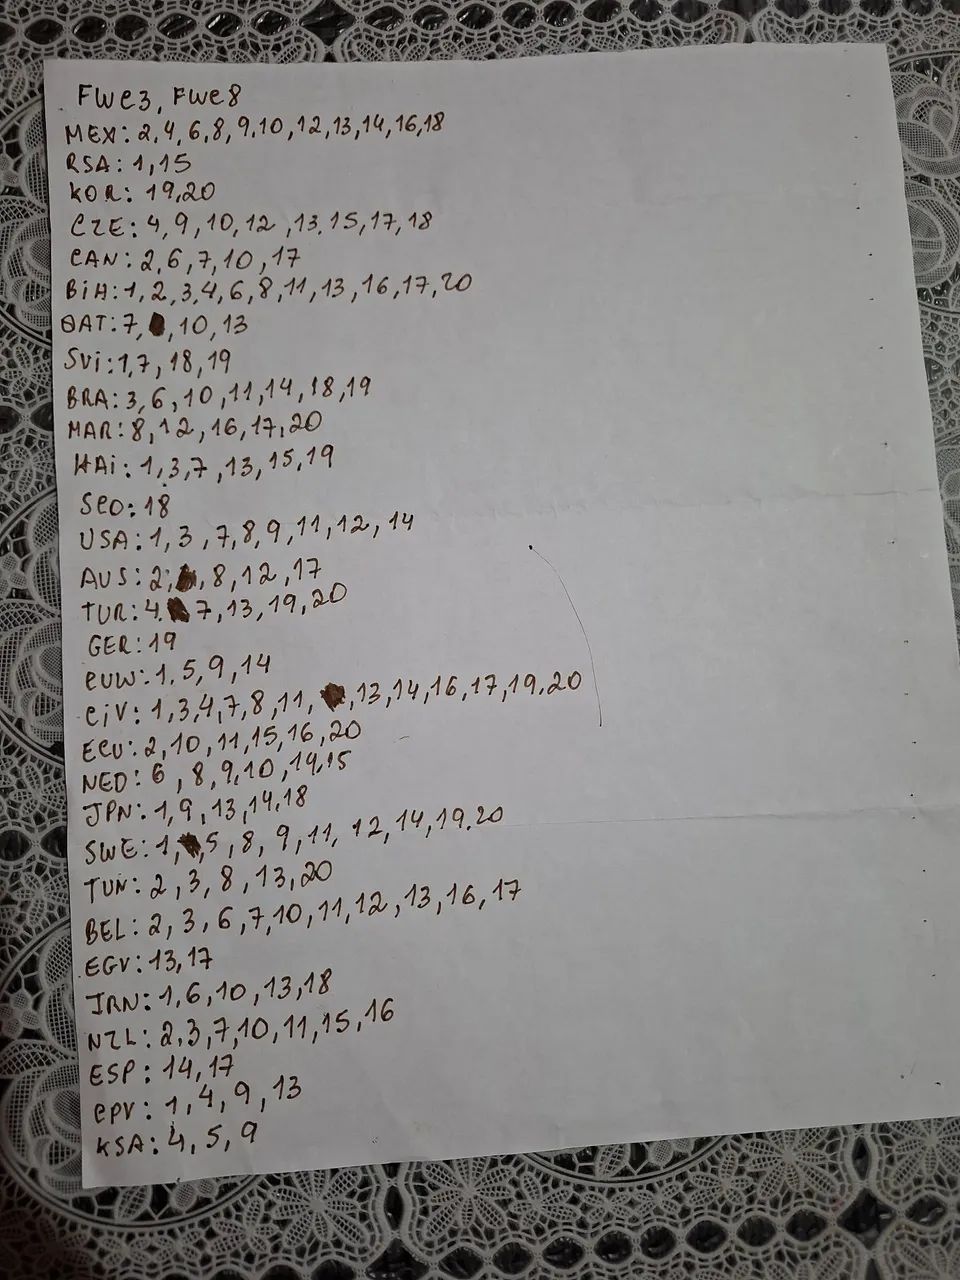 FWC3, FWC8
MEX: 2,4,6,8,9,10,12,13,14,16,18
RSA: 1,15
KOR: 19,20
CZE: 4,9,10,12,13,15,17,18
CAN: 2,6,7,10,17
BiH: 1,2,3,4,6,8,11,13,16,17,20
QAT: 7, ,10,13
SVi: 1,7,18,19
BRA: 3,6,10,11,14,18,19
MAR: 8,12,16,17,20
HAi: 1,3,7,13,15,19
SCO: 18
USA: 1,3,7,8,9,11,12,14
AUS: 2, ,8,12,17
TUR: 4, 7,13,19,20
GER: 19
CUW: 1,5,9,14
CiV: 1,3,4,7,8,11, ,13,14,16,17,19,20
ECU: 2,10,11,15,16,20
NED: 6,8,9,10,14,15
JPN: 1,9,13,14,18
SWE: 1, ,5,8,9,11,12,14,19,20
TUN: 2,3,8,13,20
BEL: 2,3,6,7,10,11,12,13,16,17
EGV: 13,17
IRN: 1,6,10,13,18
NZL: 2,3,7,10,11,15,16
ESP: 14,17
CPV: 1,4,9,13
KSA: 4,5,9